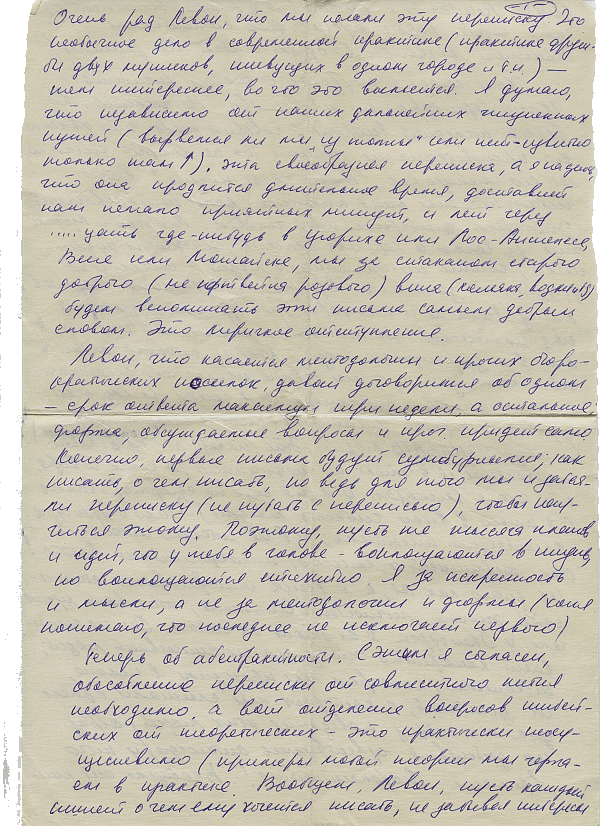 Очень рад Левон, что мы начали эту переписку. Это
необычное дело в современной практике (практике друж-
бы двух мужиков, живущих в одном городе и т.п.) —
тем интереснее, во что это выльется. Я думаю,
что независимо от наших дальнейших жизненных
путей (вырвемся ли мы "из толпы" или нет -
только там ↑), эта своеобразная переписка, а я надеюсь,
что она продлится длительное время, доставит
нам немало приятных минут, и лет через
..... цать где-нибудь в Цюрихе или Лос-Анжелесе,
Вене или Можайске, мы за стаканом старого
доброго (не портвейна розового) вина (коньяка, водки)
будем вспоминать эти письма самым добрым
словом. Это лиричное отступление.
Левон, что касается методологии и прочих бюро-
кратических, давай договоримся об одном
— срок ответа максимум три недели, а остальное
форма, обсуждаемые вопросы и проч. придет само
Конечно, первые письма будут сумбурными, как
писать, о чем писать, но ведь для того мы и затея-
ли переписку (не путать с переписью), чтобы нау-
читься этому. Поэтому, пусть те тысяча планов
и идей, что у тебя в голове - воплощаются в жизнь,
но воплощаются стихийно. Я за искренность
и мысли, а не за методологии и формы (хотя
понимаю, что последнее не исключает первого)
Теперь об абстрактности. (Этим я согласен,
обособление переписки от совместного питья
необходимо, а вот отделение вопросов житей-
ских от теоретических - это практически неосу-
ществимо (примеры любой теории мы черпа-
ем в практике. Вообщем, Левон, пусть каждый
пишет о чем ему хочется писать, не забывая интересы